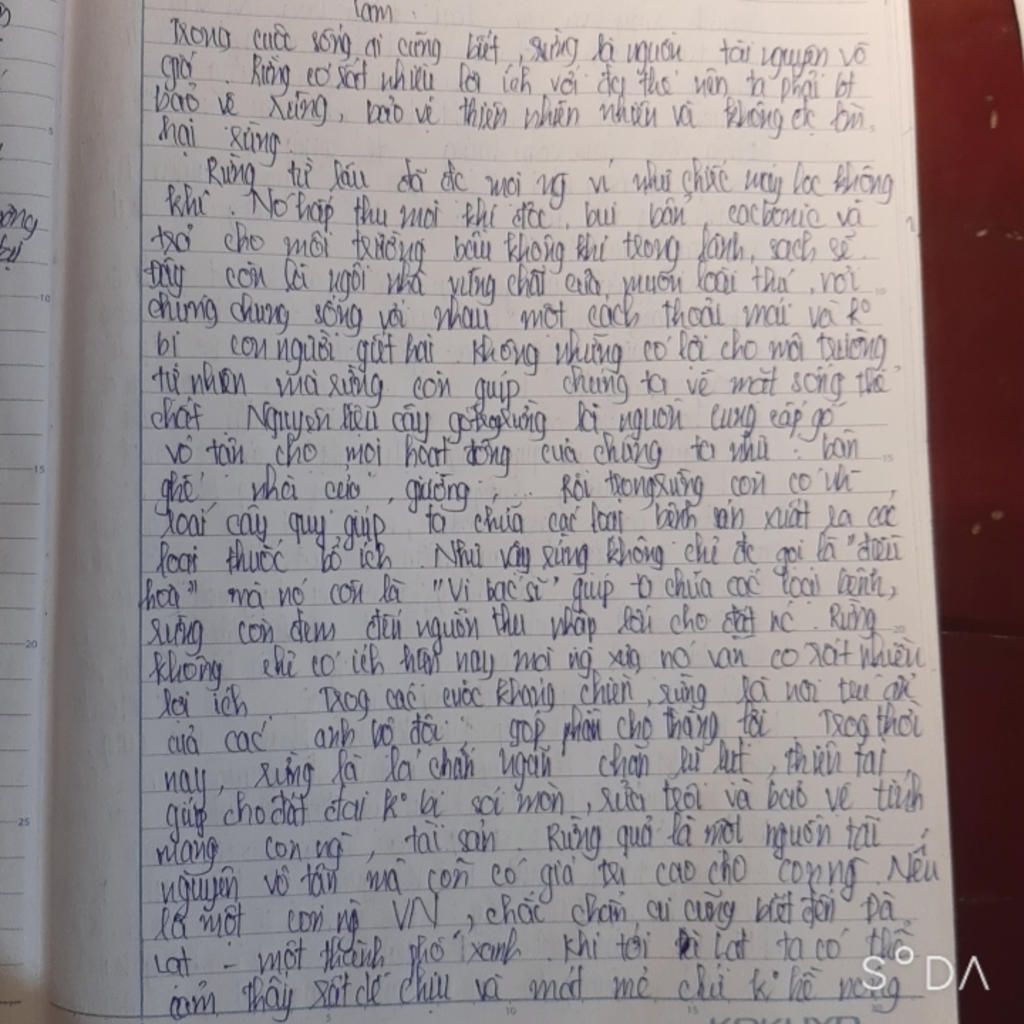 làm.
Trong cuộc sống ai cũng biết, rừng là nguồn tài nguyên vô
giá. Rừng có rất nhiều lợi ích với đs thế nên ta phải bt
bảo vệ rừng, bảo vệ thiên nhiên nhiên và không đc tàn
hại rừng.
Rừng từ lâu đã đc mọi ng ví như chiếc máy lọc không
khí. Nó hấp thu mọi khí độc, bụi bẩn, cacbonic và
trả cho môi trường bầu không khí trong lành, sạch sẽ.
Đây còn là ngôi nhà vững chãi của muôn loài thú, nơi
chúng chung sống với nhau một cách thoải mái và ko
bị con người giết hại. Không những có lợi cho môi trường
tự nhiên mà rừng còn giúp chúng ta về mặt sống thể
chất. Nguyên liệu cây gỗ trog rừng là nguồn cung cấp gỗ
vô tận cho mọi hoạt động của chúng ta như: bàn
ghế, nhà cửa, giường,... Rồi trong rừng còn có
loài cây quý giúp ta chữa các loại bệnh sản xuất ra các
loại thuốc bổ ích. Như vậy rừng không chỉ đc gọi là "điều
hoà" mà nó còn là "Vị bác sĩ" giúp ta chữa các loại bệnh,
rừng còn đem đến nguồn thu nhập lớn cho đất nc. Rừng
không chỉ có ích hiện nay mọi ng xưa nó vẫn có rất nhiều
lợi ích. Trog các cuộc kháng chiến, rừng là nơi trú ẩn
của các anh bộ đội góp phần cho thắng lợi. Trog thời
nay, rừng là lá chắn ngăn chặn lũ lụt, thiên tai,
giúp cho đất đai ko bị sói mòn, rửa trôi và bảo vệ tính
mạng con ng, tài sản. Rừng quả là một nguồn tài
nguyên vô tận mà còn có giá trị cao cho con ng. Nếu
là một con ng VN, chắc chắn ai cũng biết đến Đà
Lạt - một thành phố xanh. Khi tới Lạt ta có thể
cảm thấy rất dễ chịu và mát mẻ chứ k hề nóng
SODA